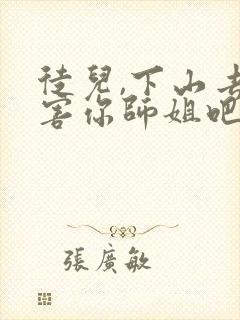 徒兒,下山去
害你師姐吧
張廣敏